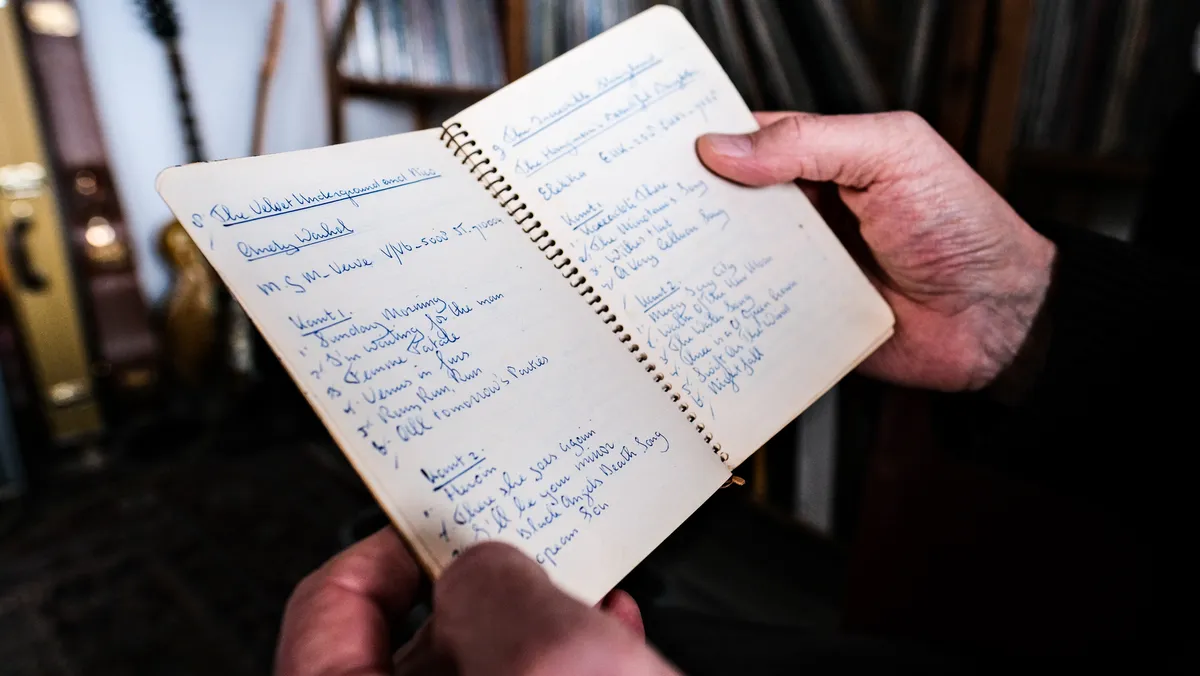 8. The Velvet Underground and Nico
Andy Warhol
M.G.M-Verve V/V6-5008
Kant 1.
1. Sunday Morning
2. I'm waiting for the man
3. Femme Fatale
4. Venus in furs
5. Run, Run, Run
6. All tomorrow's Parties
Kant 2.
1. Heroin
2. There she goes again
3. I'll be your mirror
Black Angels Death Song
opean Son
9. The Incredible Stringband
The Hangman's Beautiful Daughter
Elektra EUK-258
Kant 1.
1. Koeeoaddi There
2. The Minotaurs Song
3. Witches Hat
4. A Very Cellular Song
Kant 2.
1. Mercy Song City
2. Waltz of the New Moon
3. The Water Song
4. Three is a Green Crown
5. Swift As The Wind
6. Nightfall